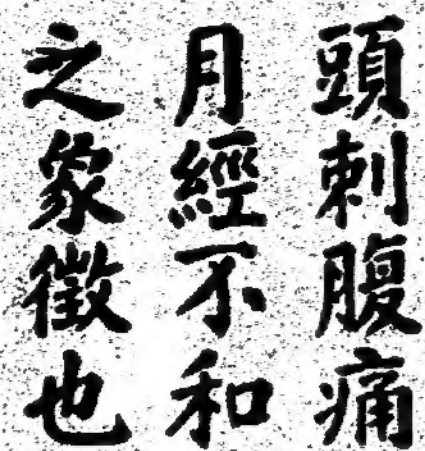 頭刺腹痛
月經不和
之象徵也